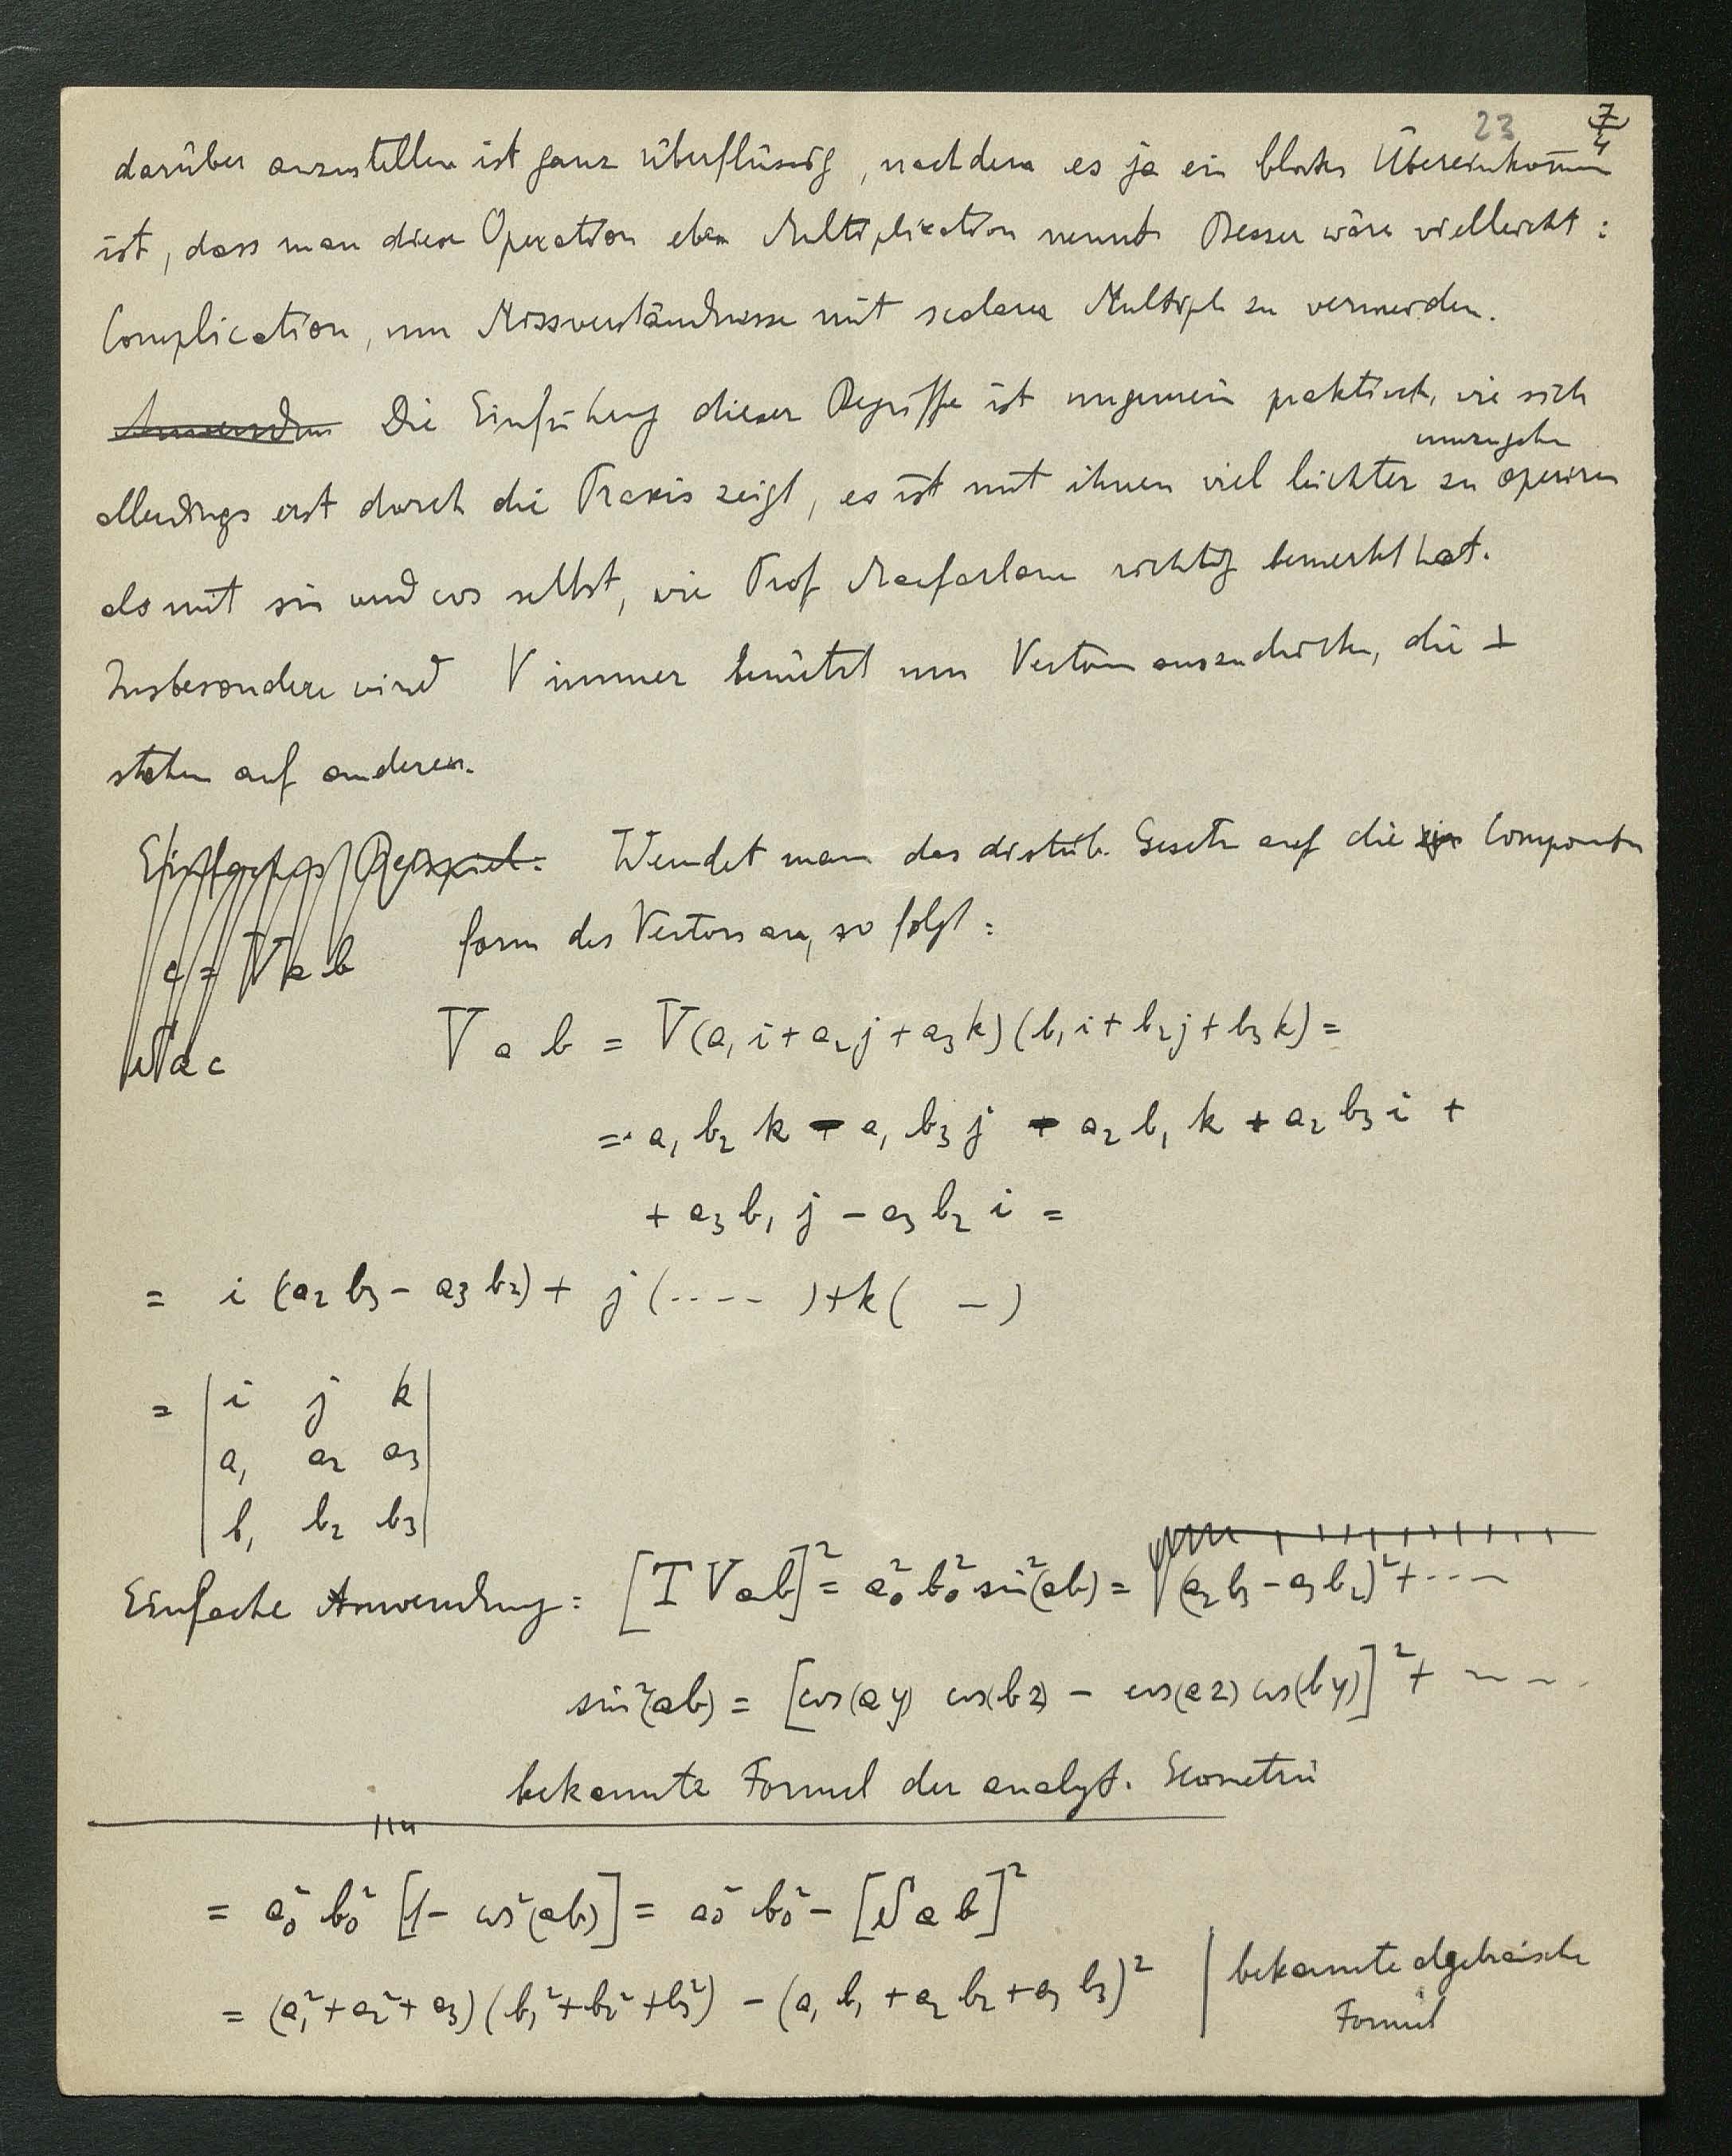 23 7/4
darüber anzustellen ist ganz überflüssig, nachdem es ja ein blosses Übereinkom̄en
ist, dass man diese Operation eben Multiplikation nennt. Besser wäre vielleicht:
Complication, um Missverständnisse mit scalarer Multipl zu vermeiden.
Die Einführung dieser Begriffe ist ungemein praktisch, wie sich
umzugehen
allerdings erst durch die Praxis zeigt, es ist mit ihnen viel leichter zu operiren
als mit sin und cos selbst, wie Prof Macfarlane richtig bemerkt hat.
Insbesondere wird V immer benützt um Vectoren auszudrücken, die ⊥
stehen auf anderen.
Einfaches Beispiel. Wendet man das distrib. Gesetz auf die Componenten
form des Vectors an, so folgt:
c = V a b
S a c
V a b = V(a₁ i + a₂ j + a₃ k)(b₁ i + b₂ j + b₃ k) =
= a₁ b₂ k - a₁ b₃ j - a₂ b₁ k + a₂ b₃ i +
+ a₃ b₁ j - a₃ b₂ i =
= i (a₂ b₃ - a₃ b₂) + j (....) + k ( — )
= | i j k |
| a₁ a₂ a₃ |
| b₁ b₂ b₃ |
Einfache Anwendung: [T V ab]² = a₀² b₀² sin²(ab) = √(a₂ b₃ - a₃ b₂)² + ...
sin²(ab) = [cos(ay) cos(bz) - cos(az) cos(by)]² + ...
bekannte Formel der analyt. Geometrie
= a₀² b₀² [1 - cos²(ab)] = a₀² b₀² - [S a b]²
= (a₁² + a₂² + a₃)(b₁² + b₂² + b₃²) - (a₁ b₁ + a₂ b₂ + a₃ b₃)² | bekannte algebraische
Formel